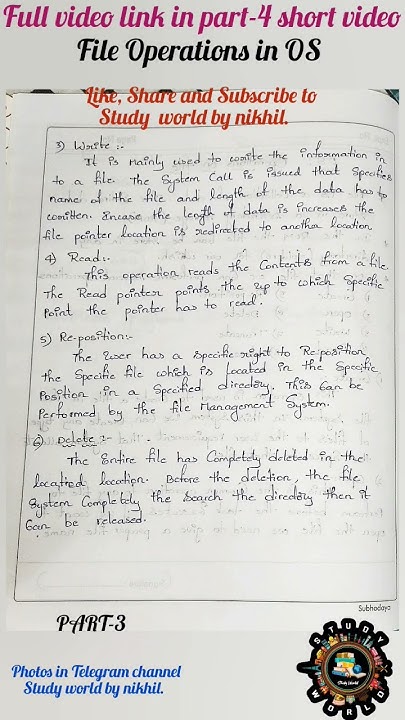 Full video link in part-4 short video
File Operations in OS
Like, Share and Subscribe to
Study world by nikhil.
3) Write :-
It is Mainly used to write the information in
to a file. The System Call is issued that Specifies
name of the file and length of the data has to
written. Incase the length of data is increases the
file pointer location is redirected to another location
4) Read:-
This operation reads the Contents from a file.
The Read pointer points the up to which Specific
Point the pointer has to read.
5) Re-position:-
The user has a Specific right to Re-position
the Specific file which is located in the Specific
Position in a Specified directory. This Can be
Performed by the file Management System.
6) Delete :-
The Entire file has Completely deleted in the
located location. Before the deletion, the file
System Completely the Search the directory then it
Can be released.
Subhodaya
PART-3
Photos in Telegram channel
Study world by nikhil.
STUDY
Study World
WORLD